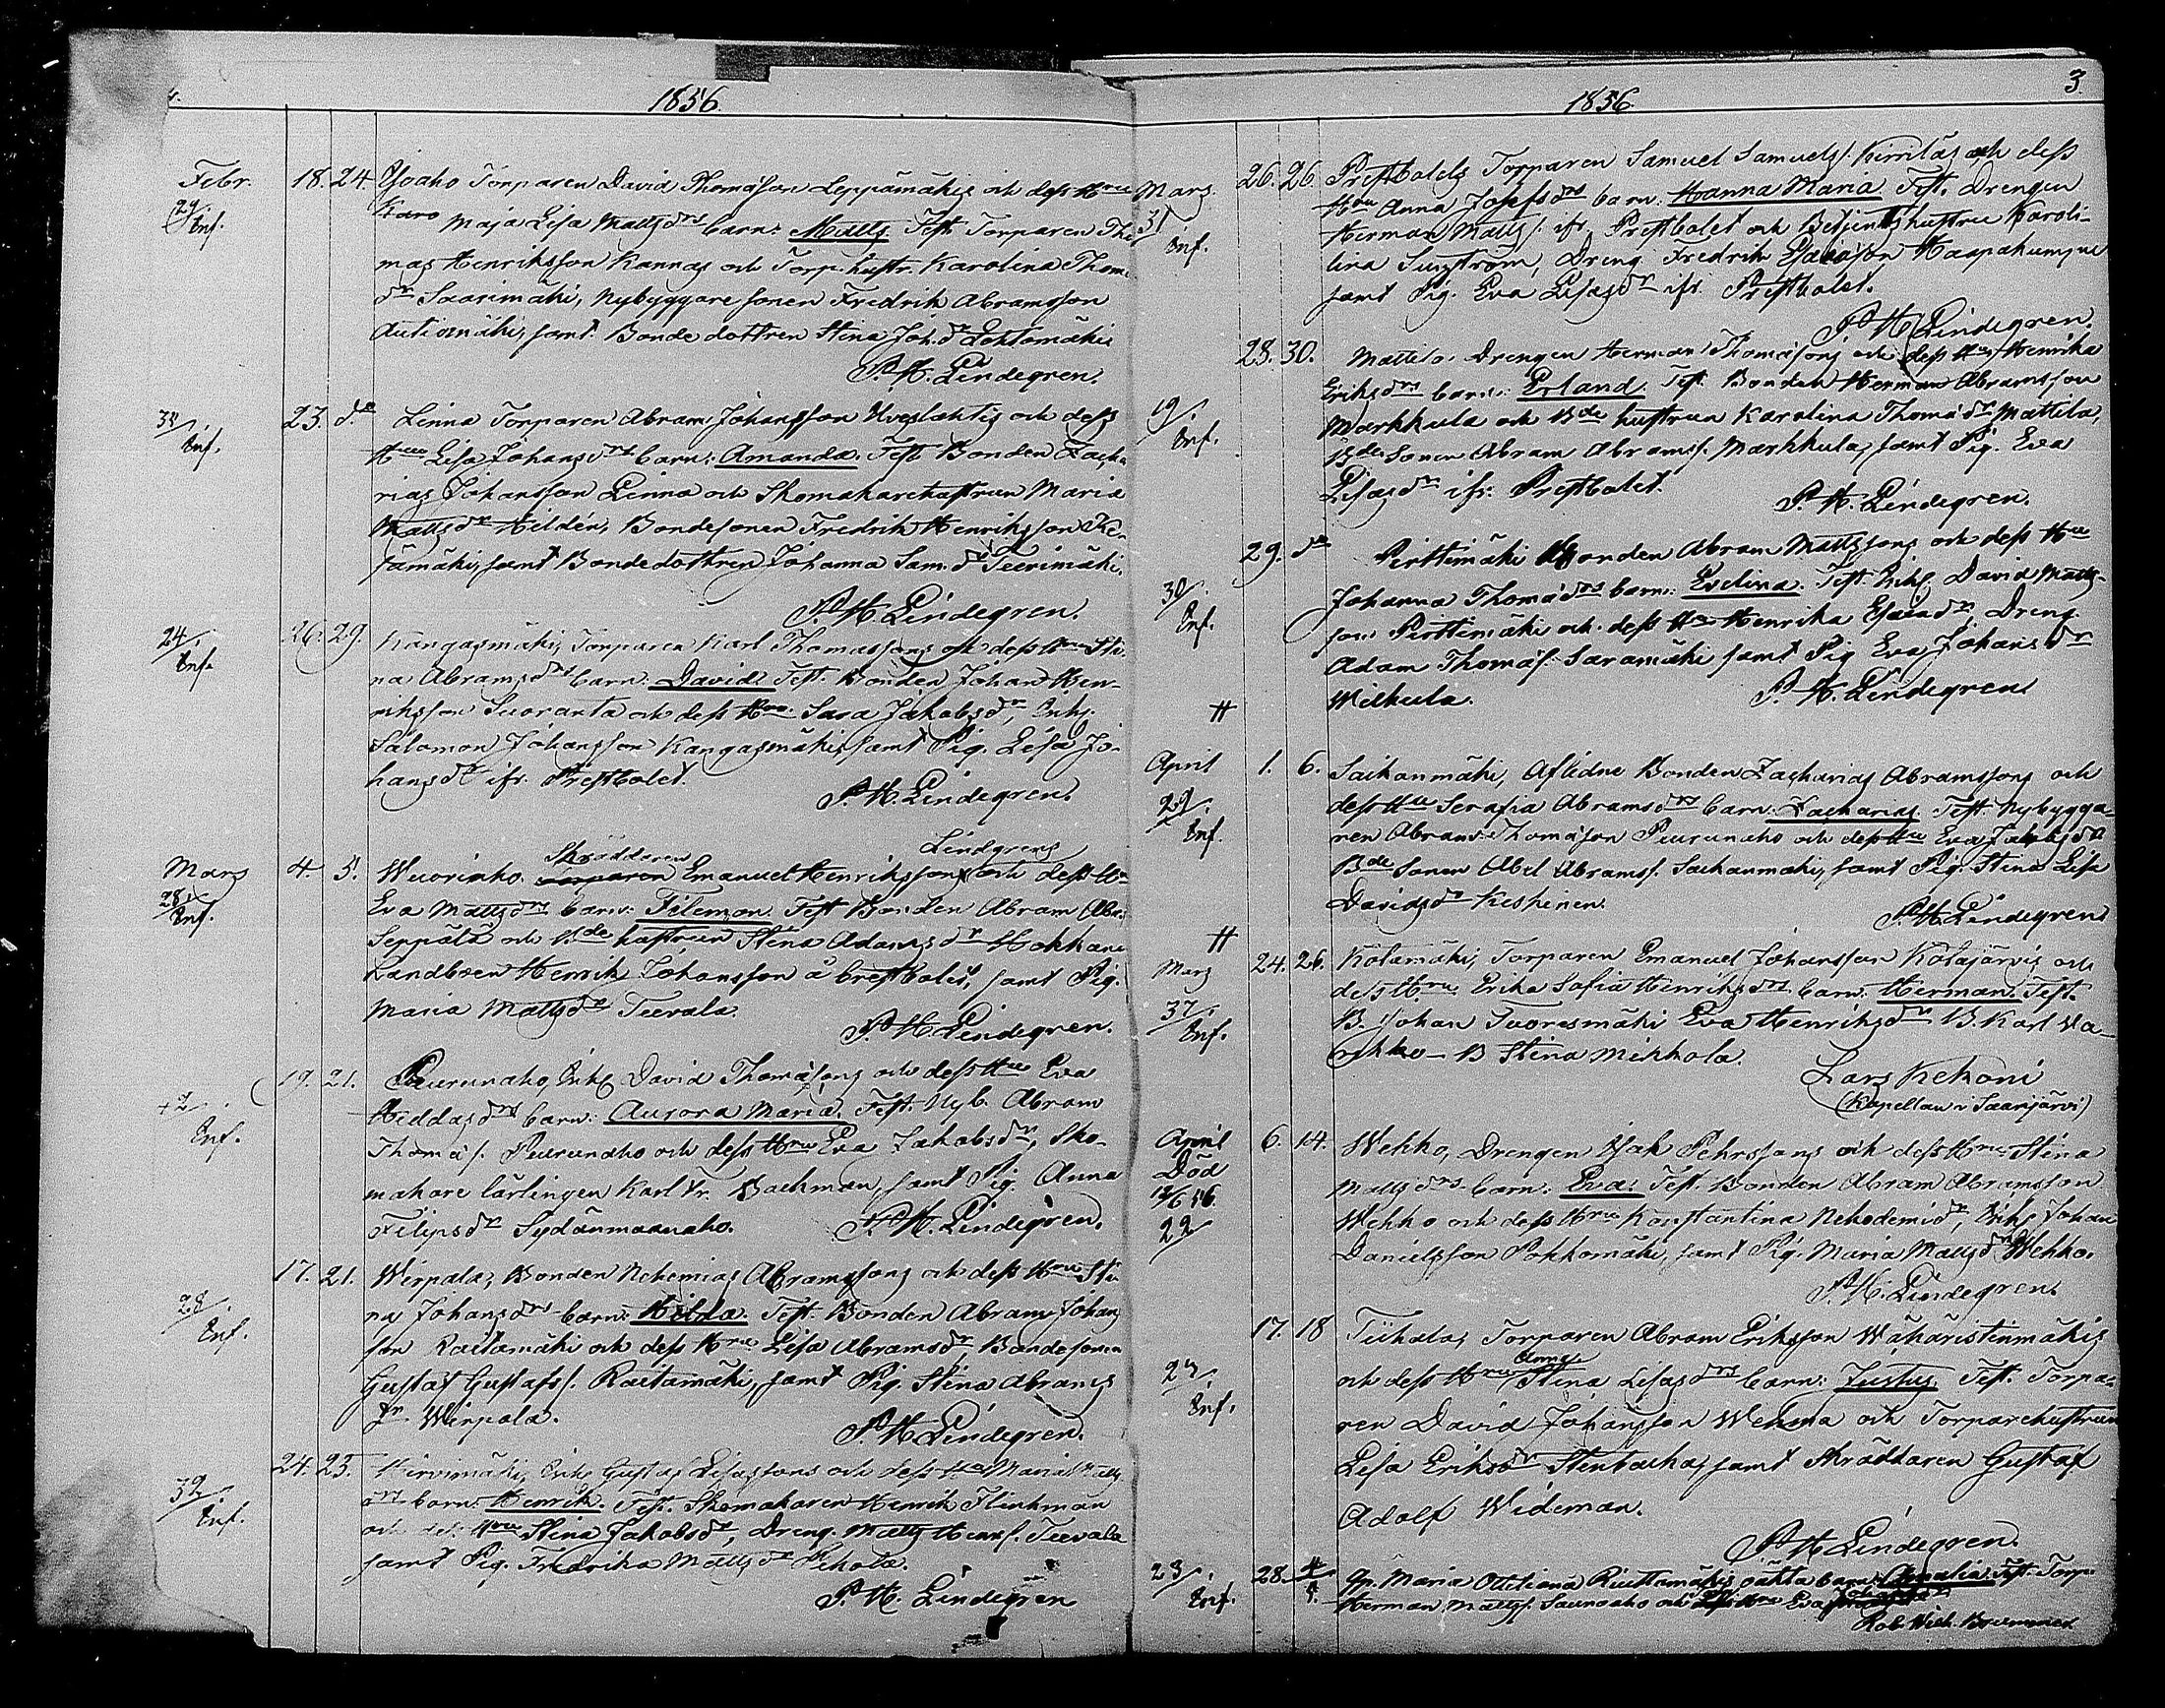 1856.
Febr. 18. 24. Yoaho Torparen David Thomasson Leppämäkis och dess Hru
29/. Enf. Karo Maja Lisa Mattsdrs barn: Matts Test Torparen Tho
mas Henriksson Kannas och Torp. hustr. Karolina Thom.
dr Saarimäki, Nybyggare sonen Fredrik Abramsson
Autiomäki, samt Bonde dottren Stina Joh. dr Lehtomäki
P. H. Lindegren.
23. do Linna Torparen Abram Johansson och dess
Enf. Hru Lisa Johansdrs barn: Amanda. Test Bonden Zacha
rias Johansson Linna och Skomakarehustrun Maria
Mattsdr Hildén, Bondesonen Fredrik Henriksson Ke-
samäki, samt Bondedottren Johanna Sam. dr Teerimäki.
P. H. Lindegren.
24/. Enf. 26. 29. Kangasmäki, Torparen Karl Thomassons och dess Hru Sti-
na Abramsdrs barn: David. Test. Bonden Johan Hen-
riksson Suoranta och dess Hru Sara Jakobsdr, Inhs.
Salomon Johansson Kangasmäki, samt Pig. Lisa Jo-
hansdr ifr. Prestbolet.
P. H. Lindegren.
Skräddaren Lindgrens
Mars 4. 5. Wuorinko. Torparen Emanuel Henrikssons och dess Hru
28/. Enf. Eva Mattsdrs barn: Filemon. Test Bonden Abram Abr.
Seppälä och Bde hustrun Stina Adamsdr Hokkane
Landboen Henrik Johansson å Prestbolet, samt Pig.
Maria Mattsdr Teevala.
P. H. Lindegren.
19. 21. Puurunaho, Inhs David Thomassons och dess Hru Eva
Heddasdrs barn: Aurora Maria. Test. Nyb. Abram
Enf. Thomas. Puurunaho och dess Hru Eva Jakobsdr, Sko-
makare lärlingen Karl Fr. Backman, samt Pig. Anna
Filipsdr Sydänmaanaho. P. H. Lindegren.
17. 21. Wirpala, Bonden Nehemias Abramssons och dess Hru Sti
28/. Enf. na Johansdrs barn: Hilda. Test. Bonden Abram Johans
son Raitamäki och dess Hru Lisa Abramsdr, Bondesonen
Gustaf Gustafss. Raitamäki, samt Pig. Stina Abrams
dr. Wirpala.
P. H. Lindegren.
24. 25. Kirvimäki, Inhs Gustaf Lisassons och dess Hru Maria Matts
Enf. drs barn: Henrik. Test. Skomakaren Henrik Flinkman
och dess Hru Stina Jakobsdr, Dreng. Matts Henrs. Teevala
samt Pig. Fredrika Mattsdr Pekola.
P. H. Lindegren
1856. 3
Mars 26. 26. Prestbolets Torparen Samuel Samuelss. Kirrilas och dess
31/ Enf. Hru Anna Josefsdrs barn: Hanna Maria Test. Drengen
Herman Mattss. ifr. Prestbolet och Betjentshustru Karoli-
lina Sunström, Dreng Fredrik Esaiasson Haapakumpu
samt Pig. Eva Lisasdr ifr. Prestbolet.
P. H. Lindegren.
28. 30. Mattila. Drengen Herman Thomassons och dess Hru Henrika
Eriksdrs barn: Erland. Test. Bonden Herman Abramsson
19/. Enf. Markkula och Bde hustrun Karolina Thomasdr Mattila,
Bde Sonen Abram Abramss. Markkula, samt Pig. Eva
Lisasdr ifr. Prestbolet.
P. H. Lindegren.
29. do Pirttimäki Bonden Abram Mattssons och dess Hru
30/. Enf. Johanna Thomasdrs barn: Evelina. Test Inhs. David Matts-
son Pirttimäki och dess Hru Henrika Esaiasdr, Dreng.
Adam Thomas. Saramäki samt Pig Eva Johansdr
Wilkula. P. H. Lindegren
April 1. 6. Saikanmäki, Aflidne Bonden Zacharias Abramssons och
29/. Enf. dess Hru Serafia Abramsdrs barn: Zacharias. Test. Nybygga-
ren Abram Thomasson Puurunaho och dess Hru Eva Jakobsdr
Bde Sonen Abel Abramss. Saikanmäki, samt Pig. Stina Lisa
Davidsdr Keskinen.
P. H. Lindegren
Mars 24. 26. Kolamäki, Torparen Emanuel Johansson Kolajärvis och
37/. Enf. dess Hru Erika Sofia Henriksdrs barn: Herman. Test.
B. Johan Tuoresmäki Eva Henriksdr B. Karl
B Stina Mikkola
Lars Kekoni
(Kapellan i Saarijärvi)
April 6. 14. Wehko, Drengen Isak Pehrssons och dess Hru Stina
Död Mattsdrs barn: Eva. Test. Bonden Abram Abramsson
12/6 56. Wehko och dess Hru Konstantina Nekodemidr, Inhs Johan
22/ Danielsson Pokkomäki, samt Pig. Maria Mattsdr Wehko.
P. H. Lindegren.
17. 18 Tiihala, Torparen Abram Eriksson Wäháristinmäkis
Anna
och dess Hru Stina Lisasdrs barn: Justus. Test. Torpa-
Enf. ren David Johansson Wehma och Torparehustrun
Lisa Eriksdr Stenbacka, samt Skräddaren Gustaf
Adolf Wideman.
P. H. Lindegren.
23/. Enf. 28. Qp. Maria Ottiliana Riuttamäkis oäkta barn Amalia. Test. Torp.
Herman Mattss. Saunaaho och Eva
Rob. Wilh. Brummer